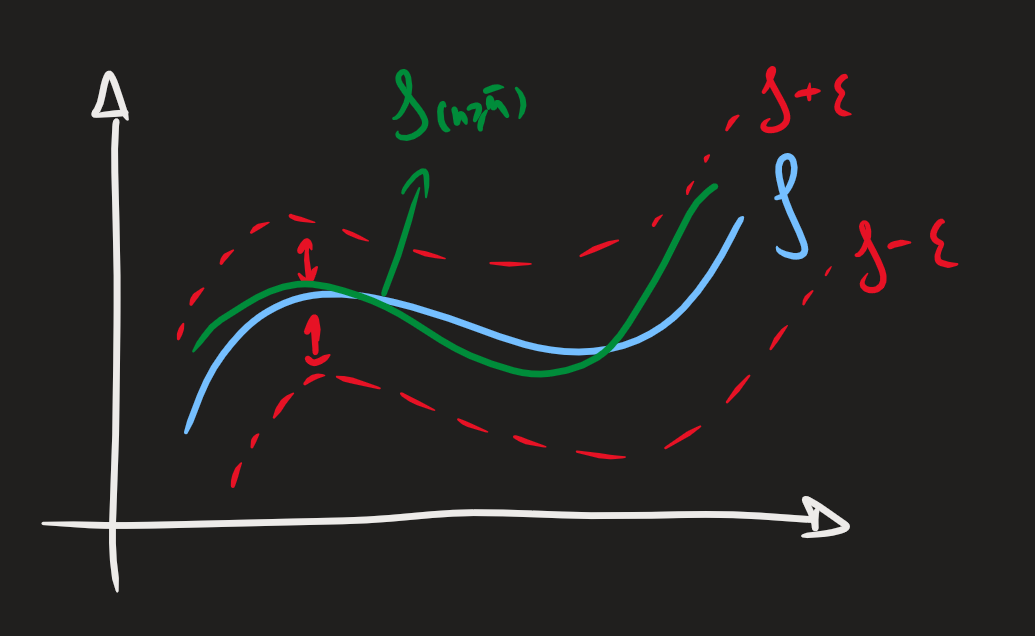 f(n≥n̄)
f+ε
f
f-ε